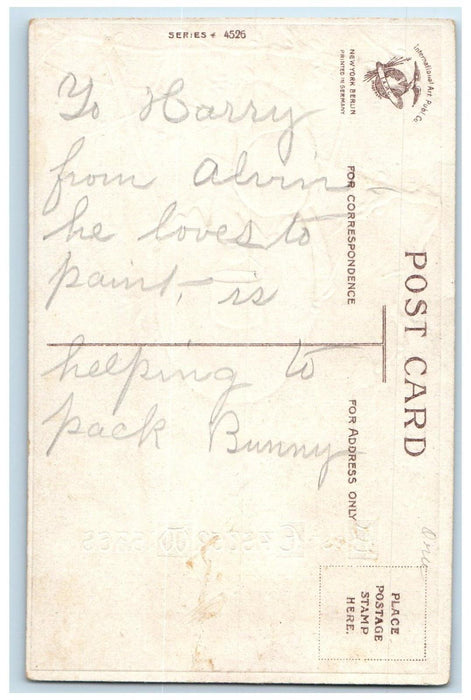 SERIES # 4526
To Harry
from Alvin -
he loves to
paint, is
helping to
pack Bunny
International Art Publ. Co
NEW YORK BERLIN
PRINTED IN GERMANY
FOR CORRESPONDENCE
POST CARD
FOR ADDRESS ONLY
PLACE
POSTAGE
STAMP
HERE.